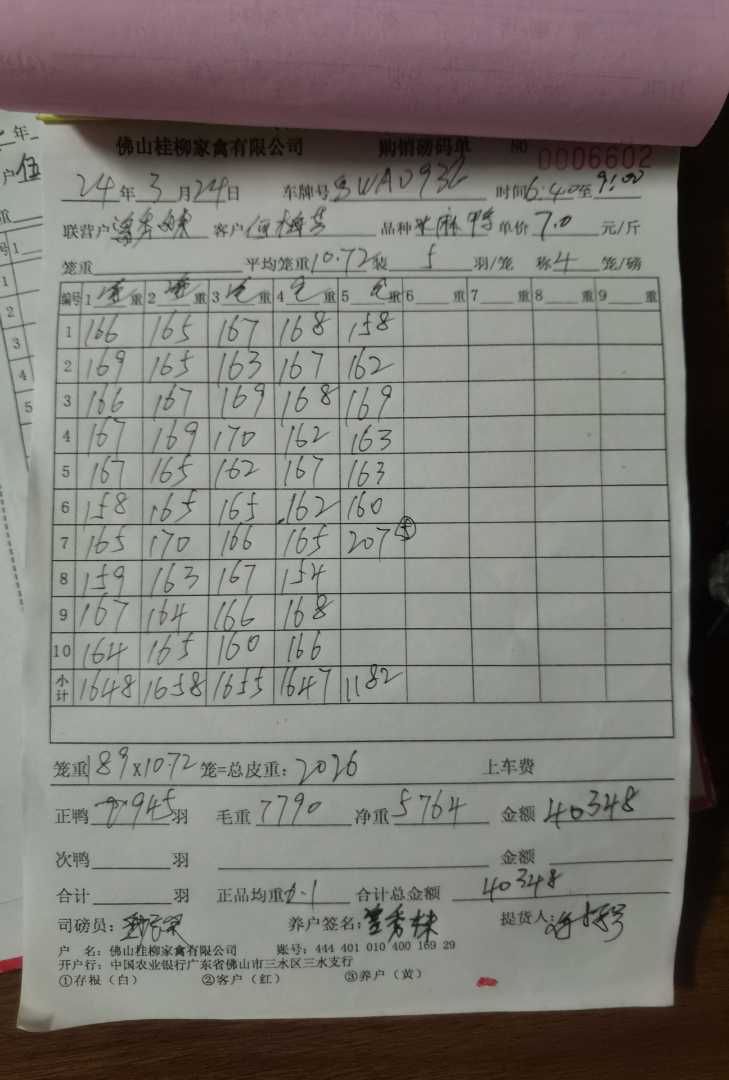 佛山桂柳家禽有限公司 购销磅码单 NO 0006602
24年3月24日 车牌号 WA093 时间6:40至9:00
联营户 客户 品种 麻鸭 单价7.0元/斤
笼重 平均笼重10.72装5羽/笼 称4笼/磅
编号 1 重 2 重 3 重 4 重 5 重 6 重 7 重 8 重 9 重
1 166 165 167 168 158
2 169 165 163 167 162
3 166 167 169 168 169
4 167 169 170 162 163
5 167 165 162 167 163
6 158 165 165 162 160
7 165 170 166 165 207 ⑤
8 159 163 167 154
9 167 164 166 168
10 164 165 160 166
小计 1648 1658 1655 1647 1182
笼重189x10.72笼=总皮重：2026 上车费
正鸭945羽 毛重7790 净重5764 金额40348
次鸭 羽 金额
合计 羽 正品均重6.1 合计总金额40348
司磅员： 养户签名： 提货人：
户 名：佛山桂柳家禽有限公司 账号：444 401 010 400 169 29
开户行：中国农业银行广东省佛山市三水区三水支行
①存根（白） ②客户（红） ③养户（黄）